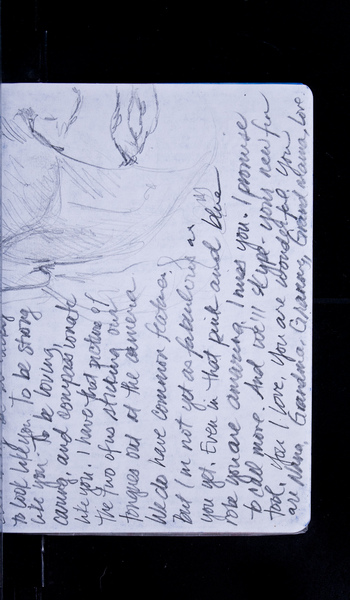 to look like you. To be strong
like you. To be loving,
caring and compassionate
like you. I have that picture of
the two of us sticking our
tongues out at the camera
We do have common features,
but I'm not yet as fabulous as
you yet. Even in that pink and blue
robe you are amazing. I miss you. I promise
to call more. And we'll skype - your new fun
tool. You I love, you are wonderful, you
are Nana, Grandma, Granny, Grand Mama, Love.